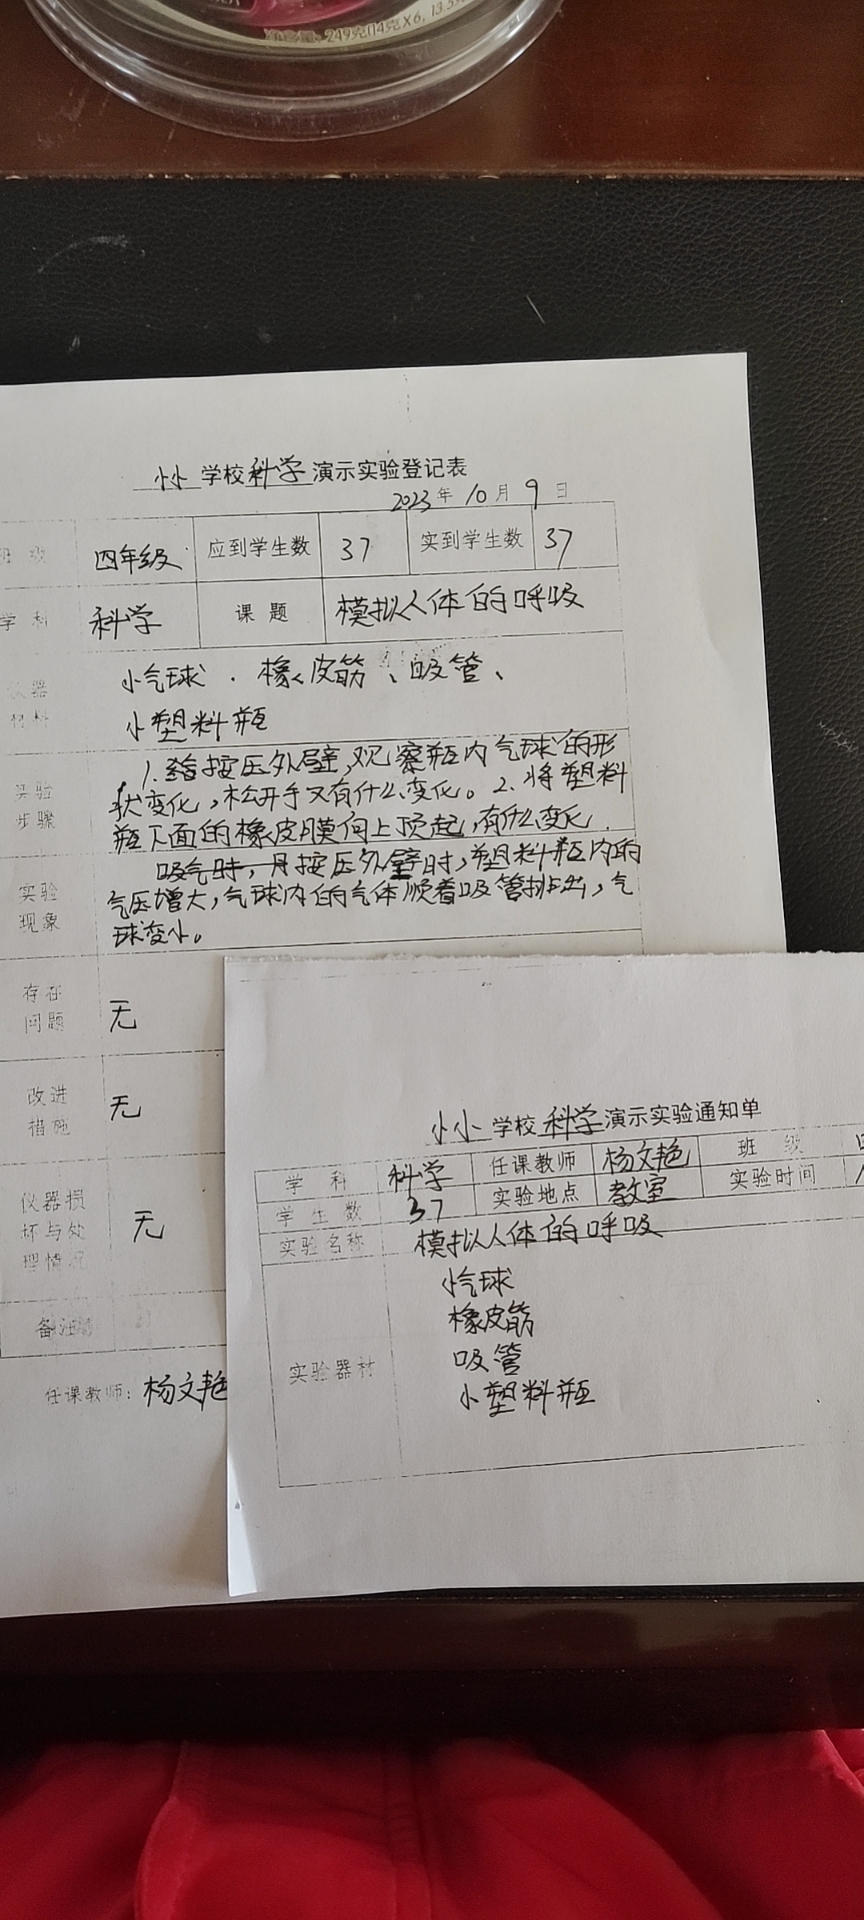 净含量：249克(14克×6，13.5
小小 学校 科学 演示实验登记表
2023 年 10 月 9 日
班 级 四年级 应到学生数 37 实到学生数 37
学 科 科学 课 题 模拟人体的呼吸
仪器 小气球、橡皮筋、吸管、
材料 小塑料瓶
实验 1.按压外壁，观察瓶内气球的形
步骤 状变化，松开手又有什么变化。2.将塑料
瓶下面的橡皮膜向上顶起，有什么变化.
实验 按压外壁时，塑料瓶内的
现象 气压增大，气球内的气体顺着吸管排出，气
球变小。
存在
问题 无
改进
措施 无
仪器损
坏与处 无
理情况
备注
任课教师：杨文艳
小小 学校 科学 演示实验通知单
学 科 科学 任课教师 杨文艳 班 级
学 生 数 37 实验地点 教室 实验时间
实验名称 模拟人体的呼吸
小气球
橡皮筋
实验器材 吸管
小塑料瓶